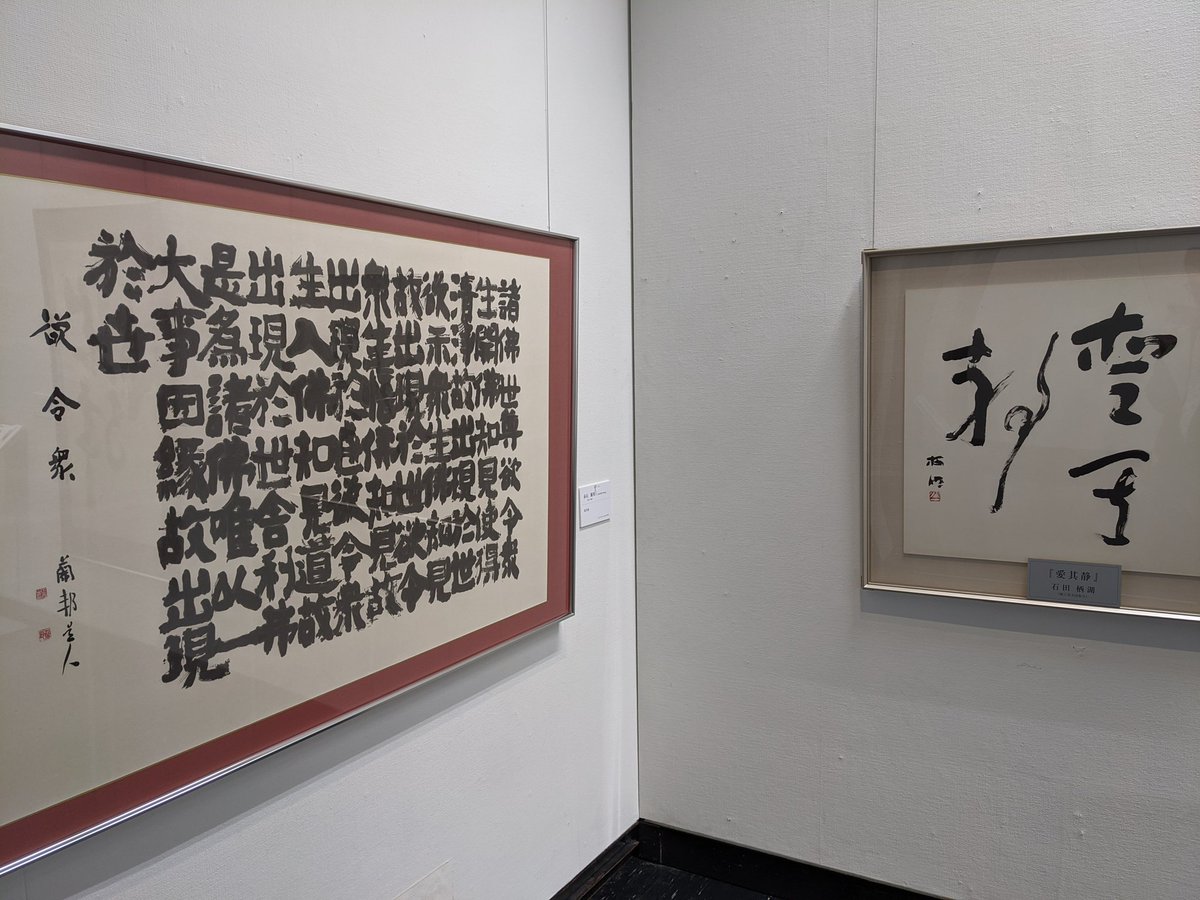 諸佛世尊欲令衆
生開佛知見使得
清淨故出現於世
欲示衆生佛知見
故出現於世欲令
衆生悟佛知見故
出現於世欲令衆
生入佛知見道故
出現於世舎利弗
是為諸佛唯以一
大事因緣故出現
於世
欲令衆
蘭邦道人
愛其
静
栖湖
「愛其静」
石田 栖湖